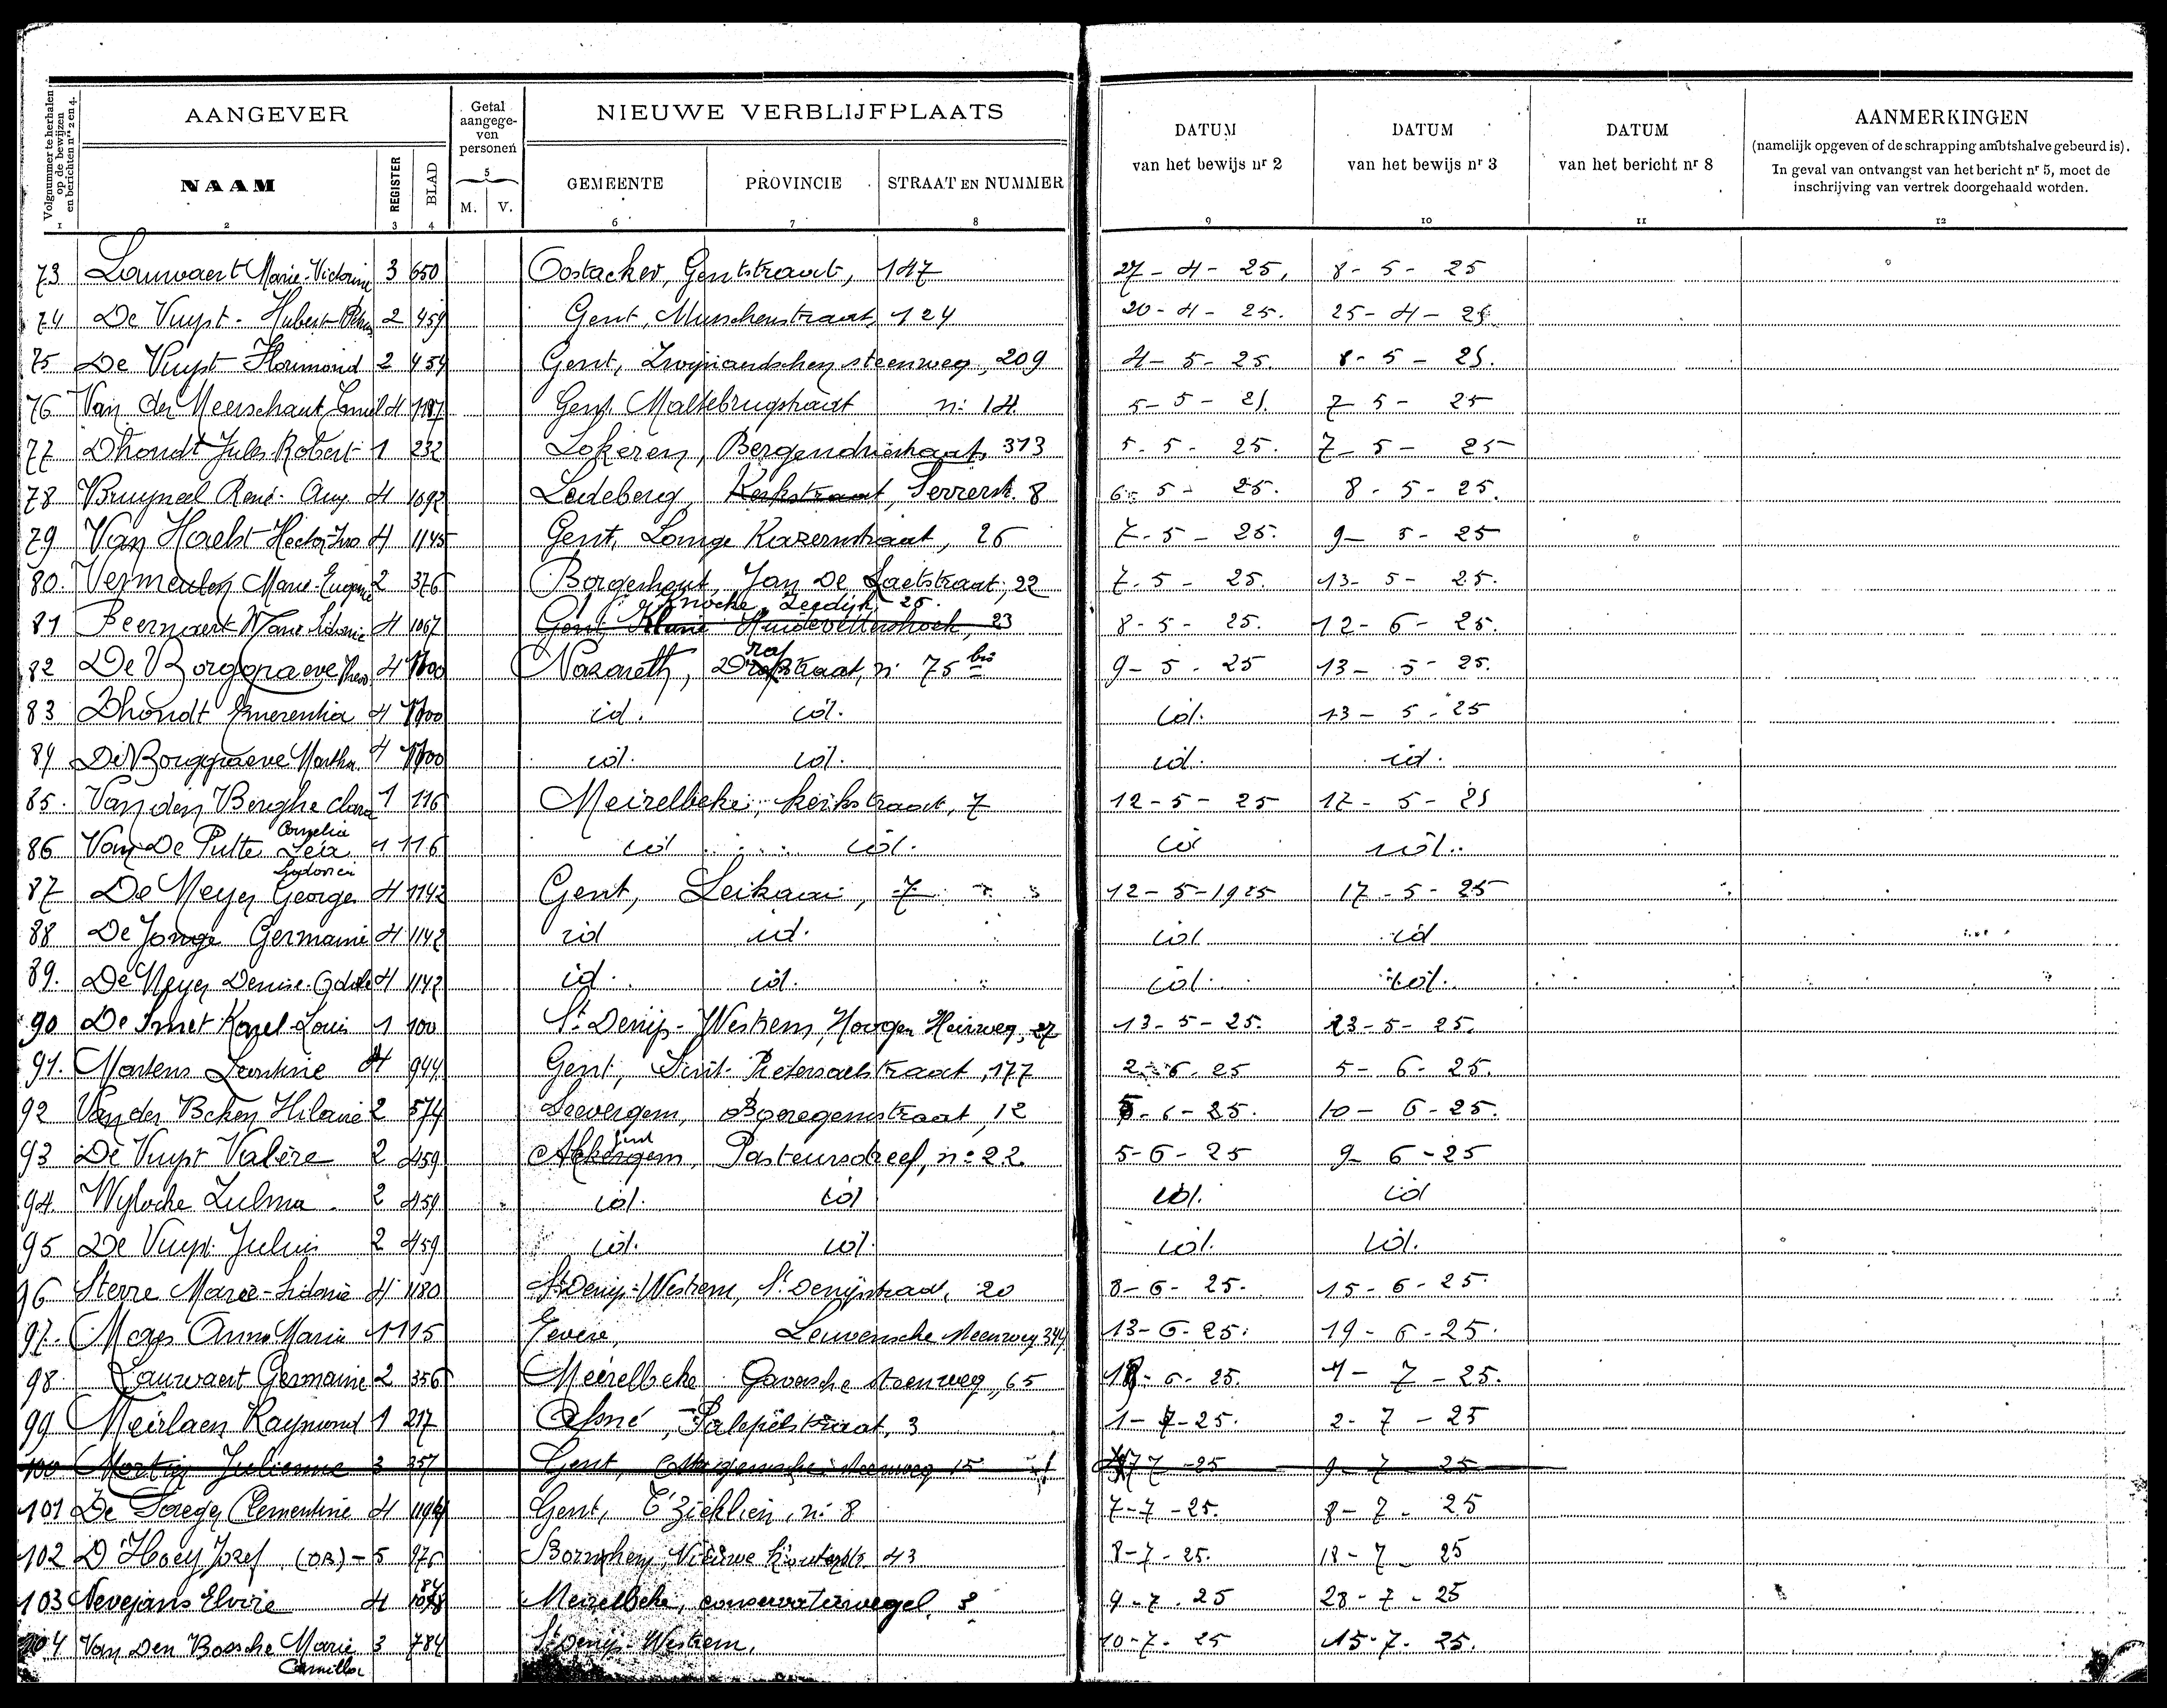 Volgnummer te herhalen op de bewijzen en berichten nrs 2 en 4.
AANGEVER
Getal aangegeven personen
NIEUWE VERBLIJFPLAATS
DATUM van het bewijs nr 2
DATUM van het bewijs nr 3
DATUM van het bericht nr 8
AANMERKINGEN
(namelijk opgeven of de schrapping ambtshalve gebeurd is).
In geval van ontvangst van het bericht nr 5, moet de inschrijving van vertrek doorgehaald worden.
NAAM REGISTER BLAD 5 M. V. GEMEENTE PROVINCIE STRAAT EN NUMMER
1 2 3 4 6 7 8 9 10 11 12
73 Lauwaert Marie-Victorine 3 650 Oostacker, Gentstraat, 147 27-4-25. 8-5-25
74 De Vuyst - Hubert 2 459 Gent, Musschenstraat, 124 20-4-25. 25-4-25
75 De Vuyst Florimond 2 459 Gent, Zwijnaardschen steenweg, 209 4-5-25. 8-5-25.
76 Van der Meerschaut Emiel 4 1187 Gent, Maltebrugstraat n: 14 5-5-25. 7-5-25
77 Dhondt Jules-Robert 1 232 Lokeren, Bergendriestraat, 313 5-5-25. 7-5-25
78 Bruyneel René-Aug 4 1092 Ledeberg, Kerkstraat, Serrerstr. 8 6-5-25. 8-5-25.
79 Van Haelst Hector 4 1145 Gent, Lange Kazernstraat, 26 7-5-25. 9-5-25
80. Vermeulen Marie-Eugenie 2 376 Borgerhout, Jan De Laetstraat, 22 7-5-25. 13-5-25.
Knocke, Zeedijk, 25.
81 Beernaert Marie Sidonie 4 1067 Gent, Klein Huidevettershoek, 23 8-5-25. 12-6-25.
82 De Borggraeve Theo 4 1100 Nazareth, Drapstraat, n: 75 bis 9-5-25 13-5-25.
83 Dhondt Emerentia 4 1100 id. id. id. 13-5-25
84 De Borggraeve Martha 4 1100 id. id. id. id.
85. Van den Berghe Clara 1 116 Meirelbeke, Kerkstraat, 7 12-5-25 17-5-25
86 Van De Putte Cornelia 1 116 id id. id id.
87 De Meyer George Lodovici 4 1142 Gent, Leikaai, 7 12-5-1925 17-5-25
88 De Jonge Germaine 4 1142 id id. id. id
89. De Meyer Denise-Odile 4 1142 id. id. id. id.
90 De Smet Karel-Louis 1 100 St Denijs-Westrem, Hoogen Heirweg, 27 13-5-25. 23-5-25.
91. Martens Leontine 4 944 Gent, Sint-Pietersaalstraat, 177 2-6-25 5-6-25.
92 Van der Beken Hilaire 2 574 Leevergem, Boeregemstraat, 12 5-6-25. 10-6-25.
93 De Vuyst Valère 2 459 Akkergem, Gent Pasteursdreef, n: 22. 5-6-25 9-6-25
94. Wylocke Zulma 2 459 id. id id. id
95 De Vuyst Julien 2 459 id. id. id. id.
96 Sterre Marie-Sidonie 4 1180 St Denijs-Westrem, St Denijstraat, 20 8-6-25. 15-6-25.
97. Maes Anna Maria 1 115 Evere, Leuvensche steenweg 344 13-6-25. 19-6-25.
98 Lauwaert Germaine 2 356 Meirelbeke Gaversche steenweg, 65 18-6-25. 4-7-25.
99 Meirlaen Raymond 1 217 Afsné, Palepelstraat, 3 1-7-25. 2-7-25
100 Martin Julienne 3 357 Gent, steenweg 15 7-7-25 9-7-25
101 De Saeger Clementine 4 Gent, T'Zieklien, n: 8 7-7-25. 8-7-25
102 D'Hoey Jozef (OB) - 5 976 Bornhem, Nieuwe Kouterstr. 43 8-7-25. 18-7-25
103 Nevejans Elvire 4 Meirelbeke, conservaterwegel, 3 9-7-25 28-7-25
104 Van Den Bossche Marie Camilla 3 784 St Denijs-Westrem. 10-7-25 15-7-25.